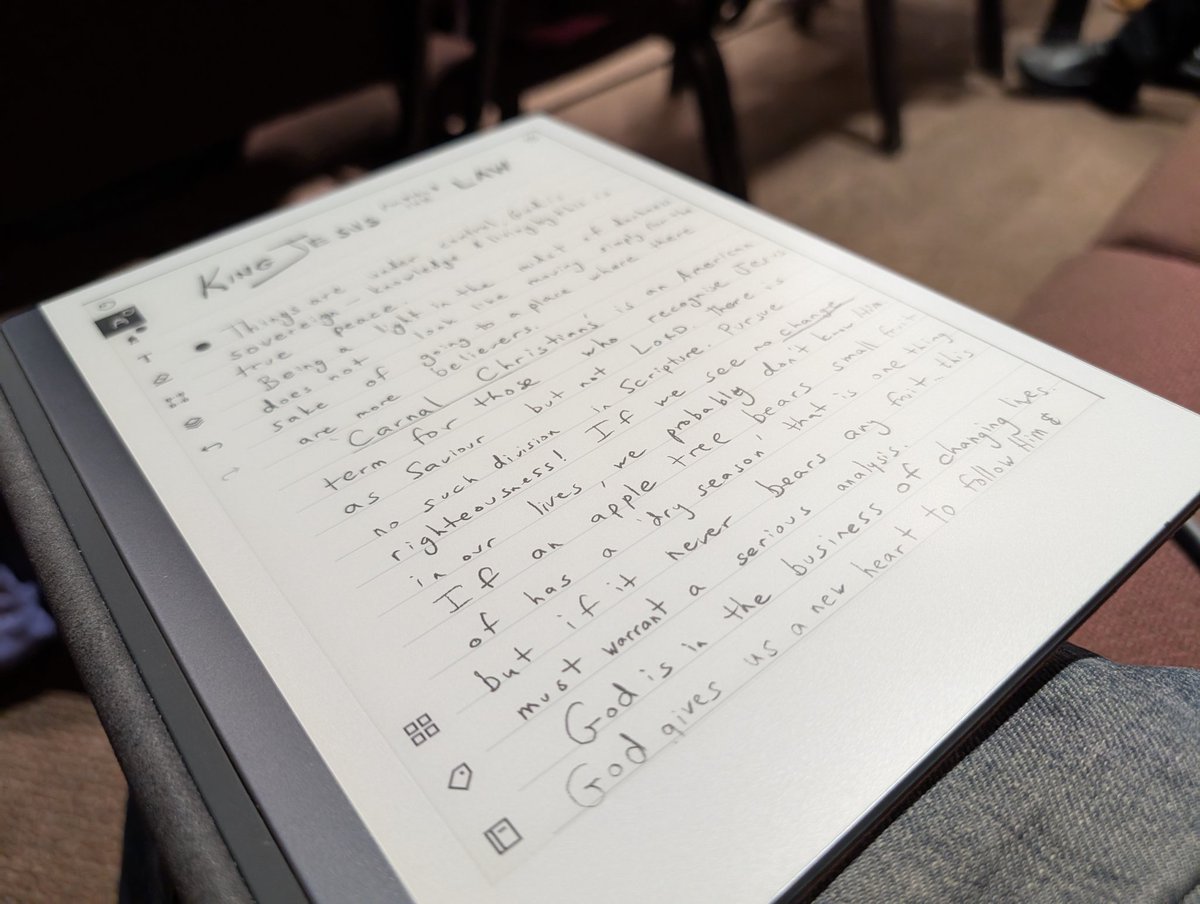 KING JESUS LAW
Things are under control, God is
sovereign – knowledge & living by this is
true peace.
Being a light in the midst of darkness
does not look like moving simply for the
sake of going to a place where there
are more believers.
'Carnal Christians' is an American
term for those who recognise Jesus
as Saviour but not LORD. There is
no such division in Scripture. Pursue
righteousness! If we see no change
in our lives, we probably don't know Him
If an apple tree bears small fruit
of has a 'dry season' that is one thing
but if it never bears any fruit, this
must warrant a serious analysis.
God is in the business of changing lives.
God gives us a new heart to follow Him &